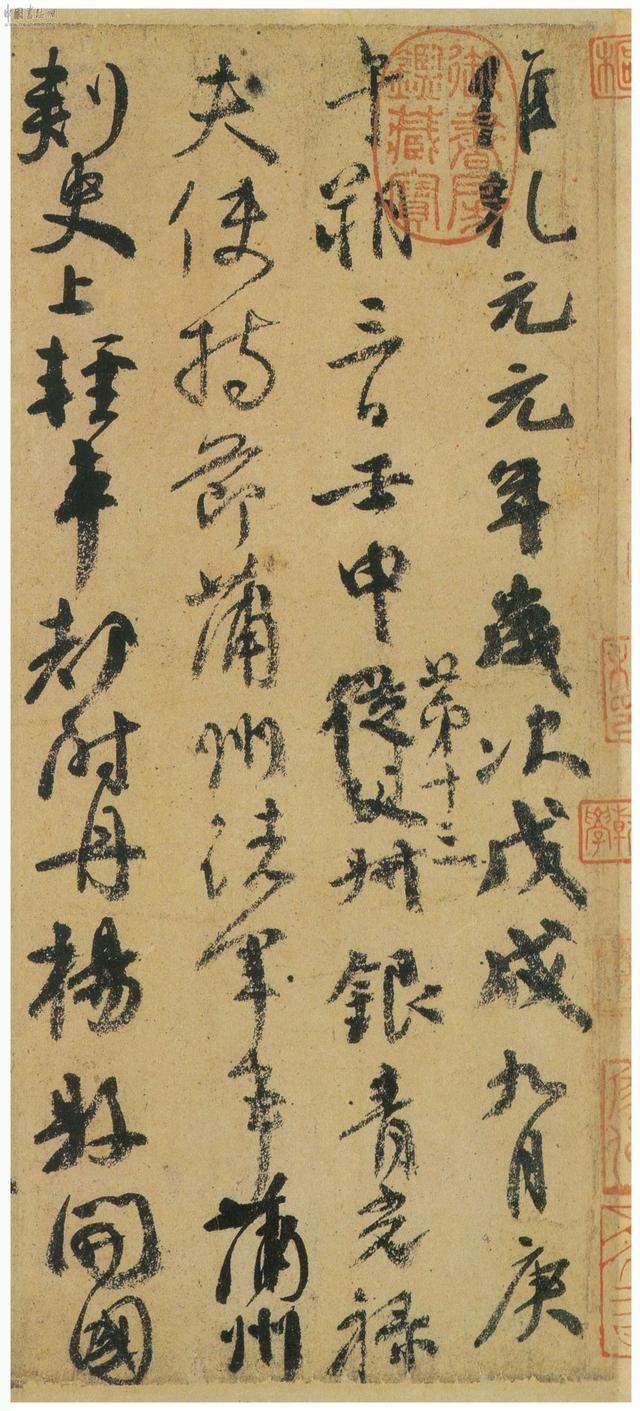 維乾元元年歲次戊戌九月庚
午朔三日壬申第十三從父卅銀青光祿
夫使持節蒲州諸軍事蒲州
刺史上輕車都尉丹楊縣開國